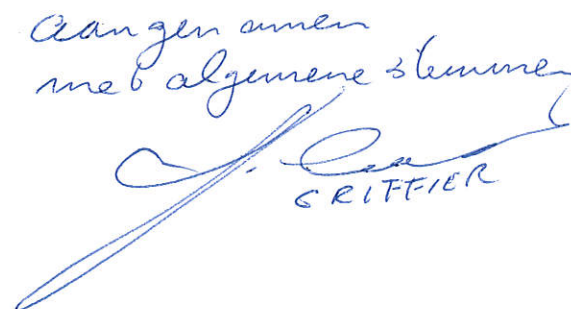 aangenomen
met algemene stemmen
GRIFFIER